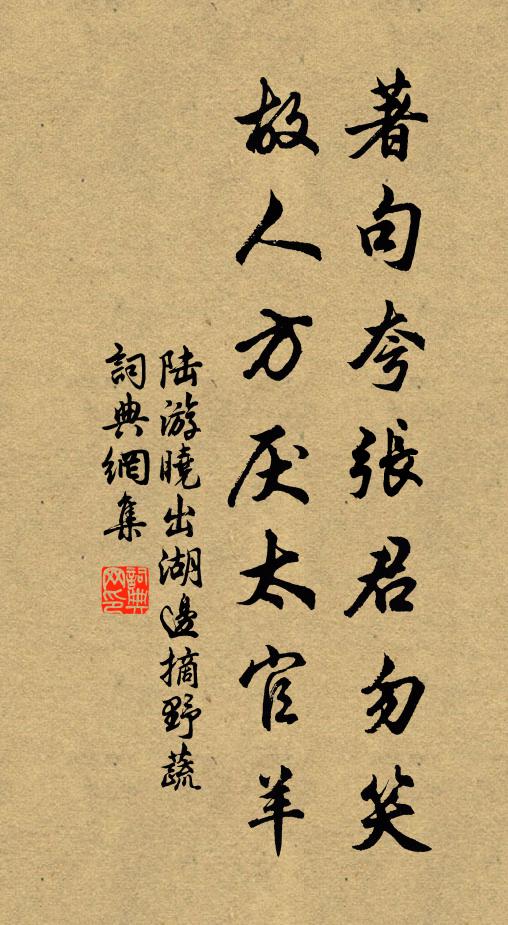 著句夸張君勿笑
故人方厌太官羊
陸游曉出湖邊摘野蔬
詞典網集
詞典网印